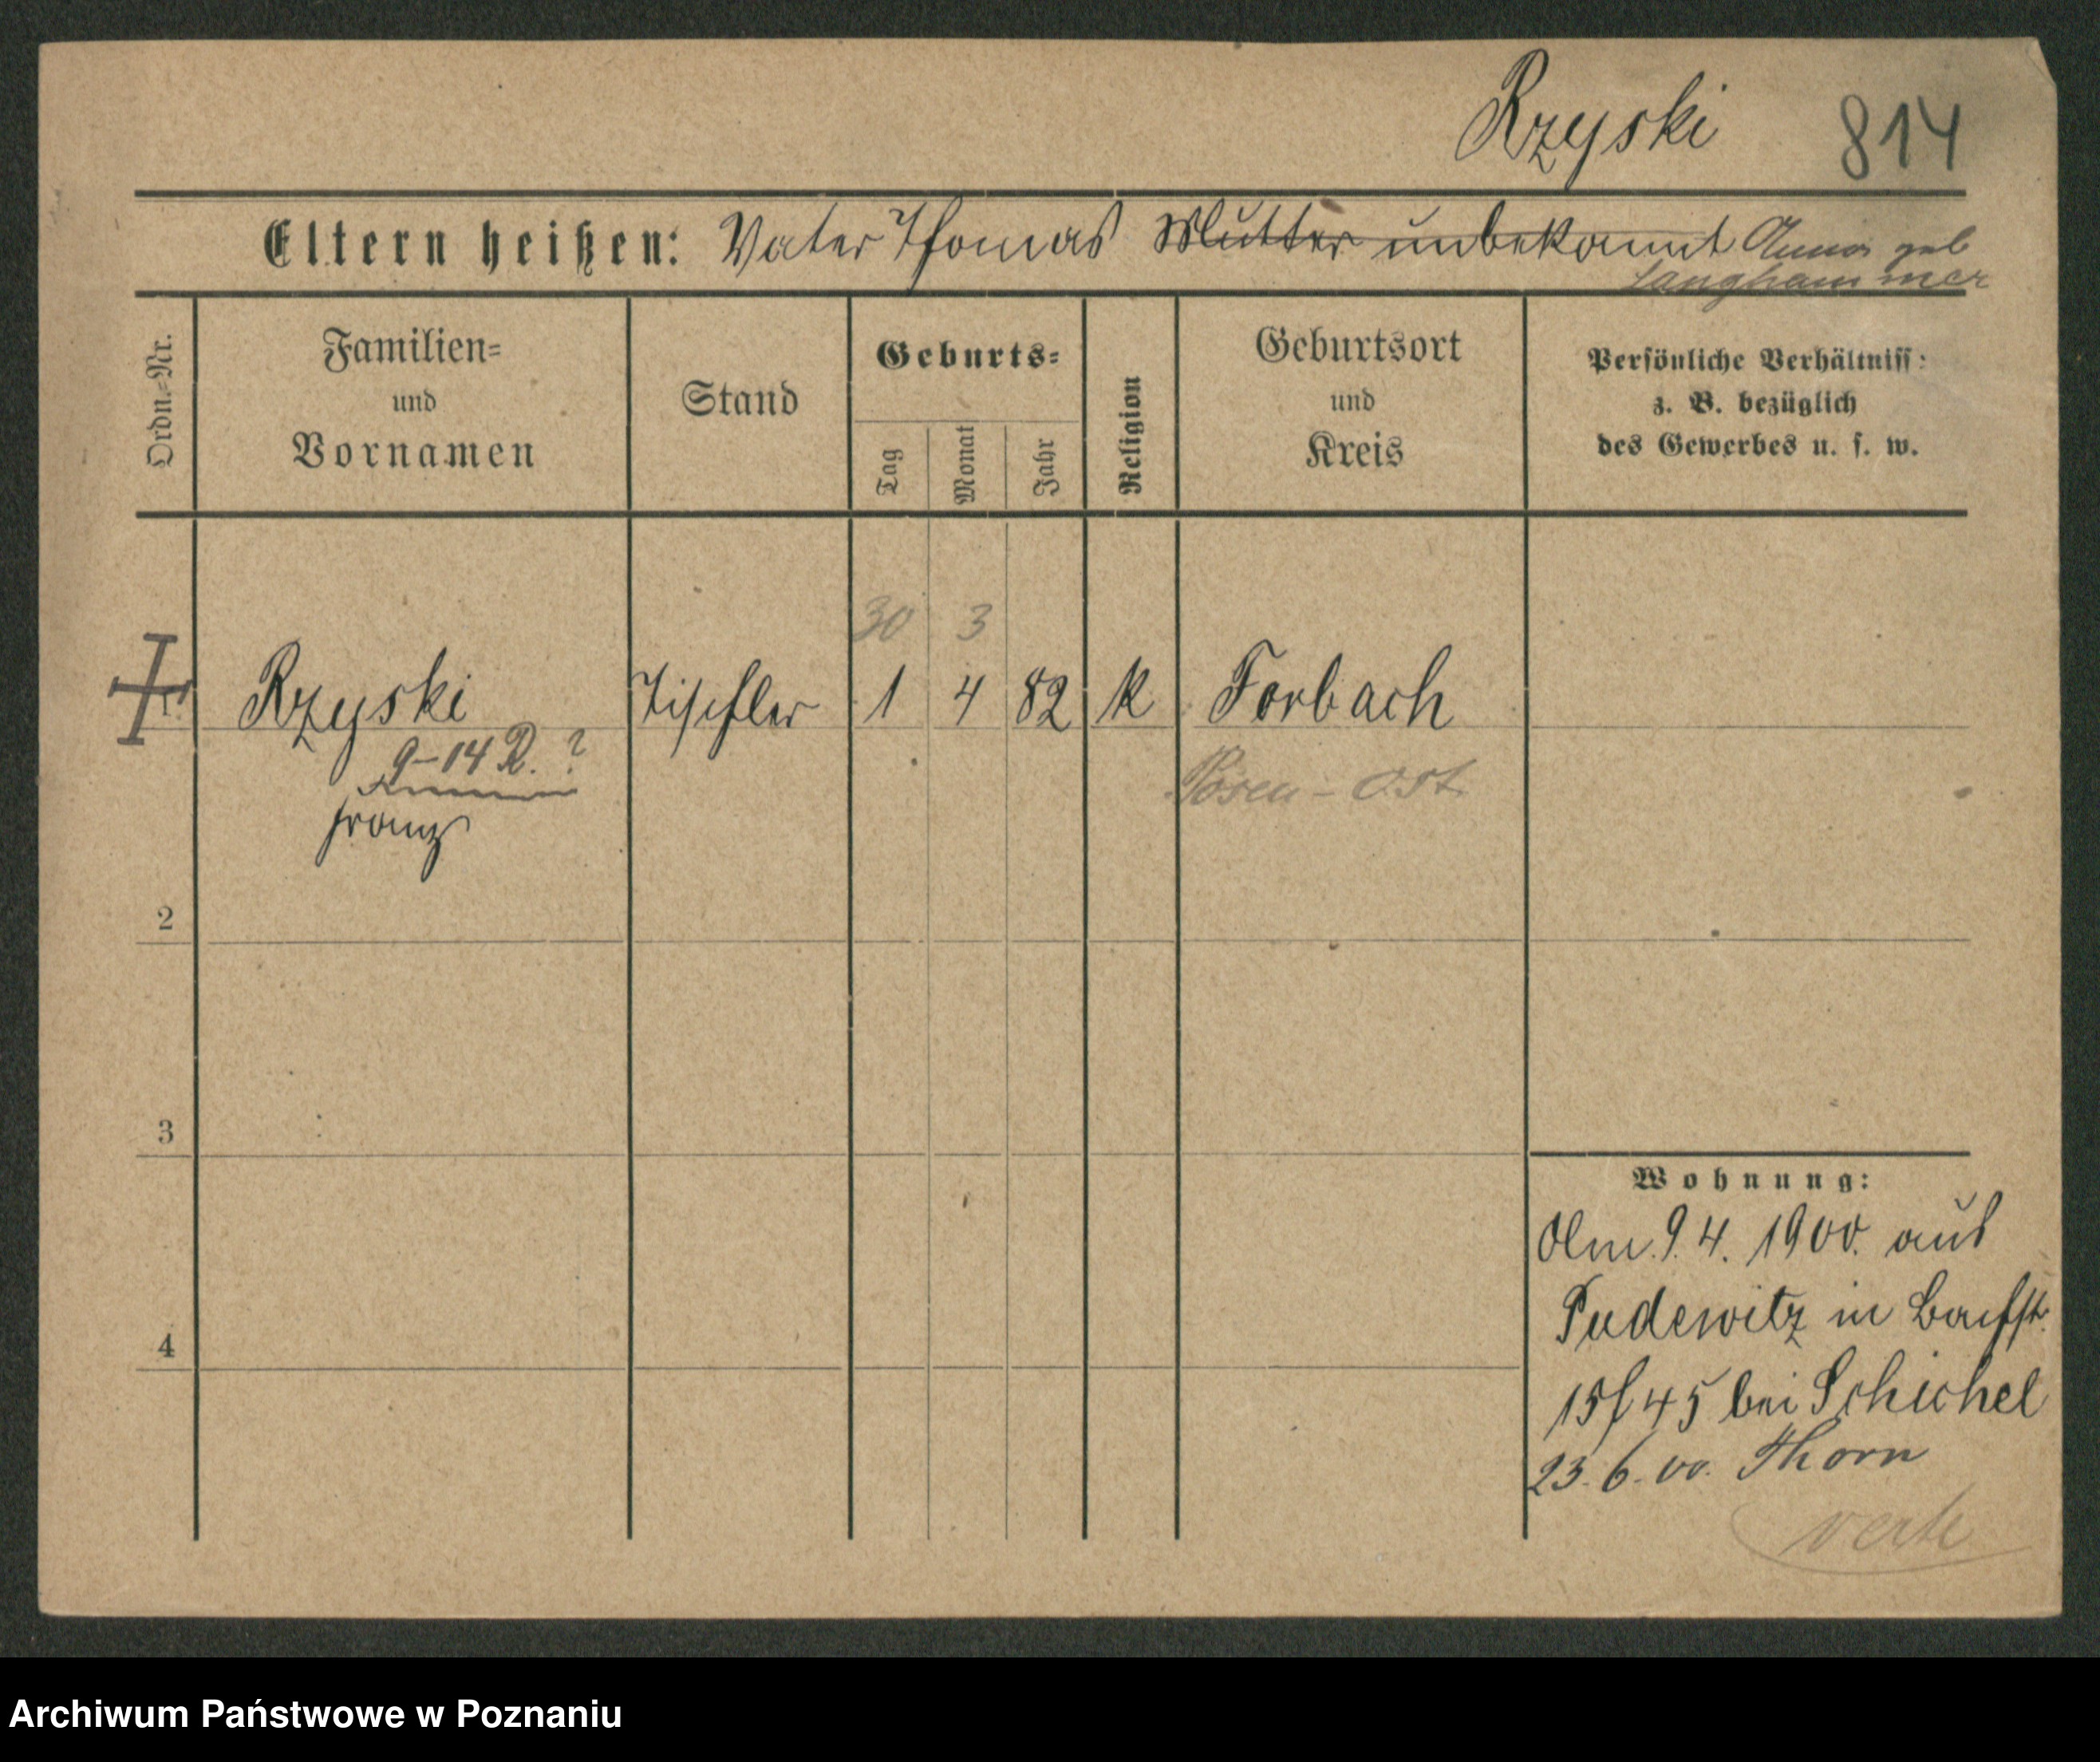 Rzyski 814
Eltern heißen: Vater Thomas Mutter unbekannt Anna geb
Langhammer
Ordn.-Nr.
Familien=
und
Vornamen
Stand
Geburts=
Tag
Monat
Jahr
Religion
Geburtsort
und
Kreis
Persönliche Verhältniss:
z. B. bezüglich
des Gewerbes u. s. w.
30 3
1. Rzyski Tischler 1 4 82 k Forbach
9-14 R. ?
Posen - Ost
Franz
2
3
4
Wohnung:
Am 9. 4. 1900. aus
Pudewitz in Bachstr.
15/45 bei Schichel
23. 6. 00. Thorn
Archiwum Państwowe w Poznaniu